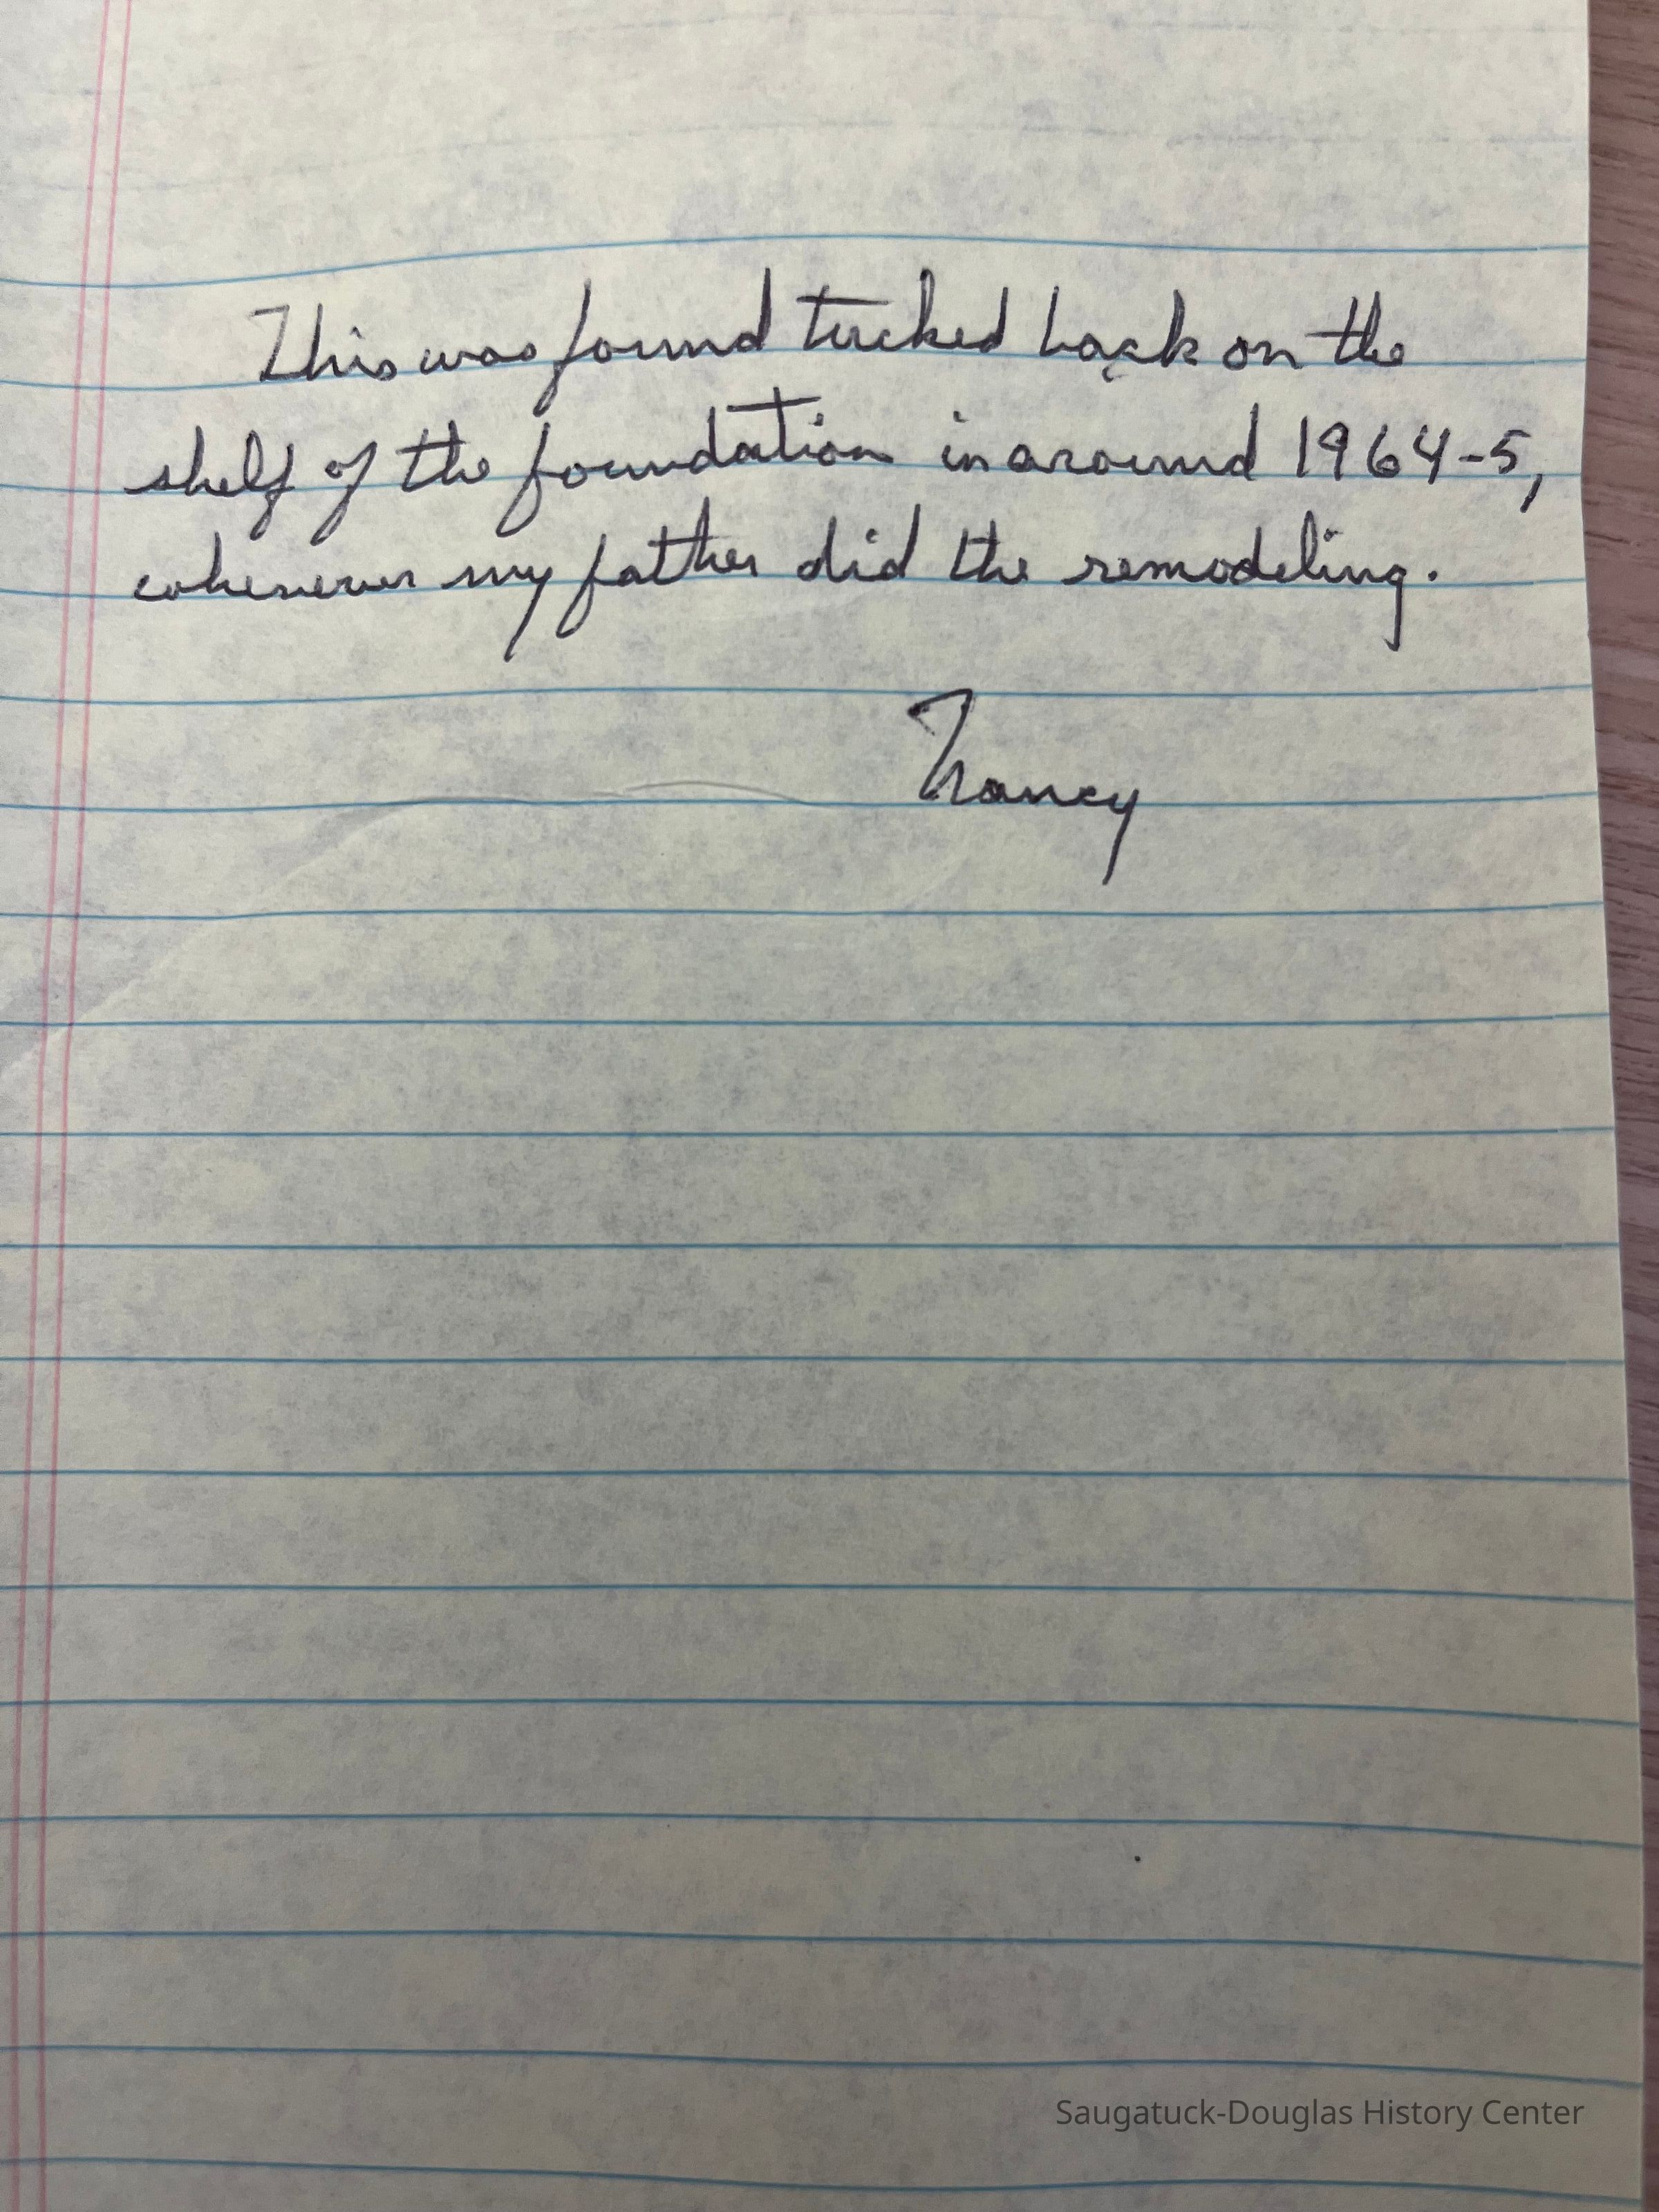 This was found tucked back on the
shelf of the foundation in around 1964-5,
whenever my father did the remodeling.
Nancy
Saugatuck-Douglas History Center